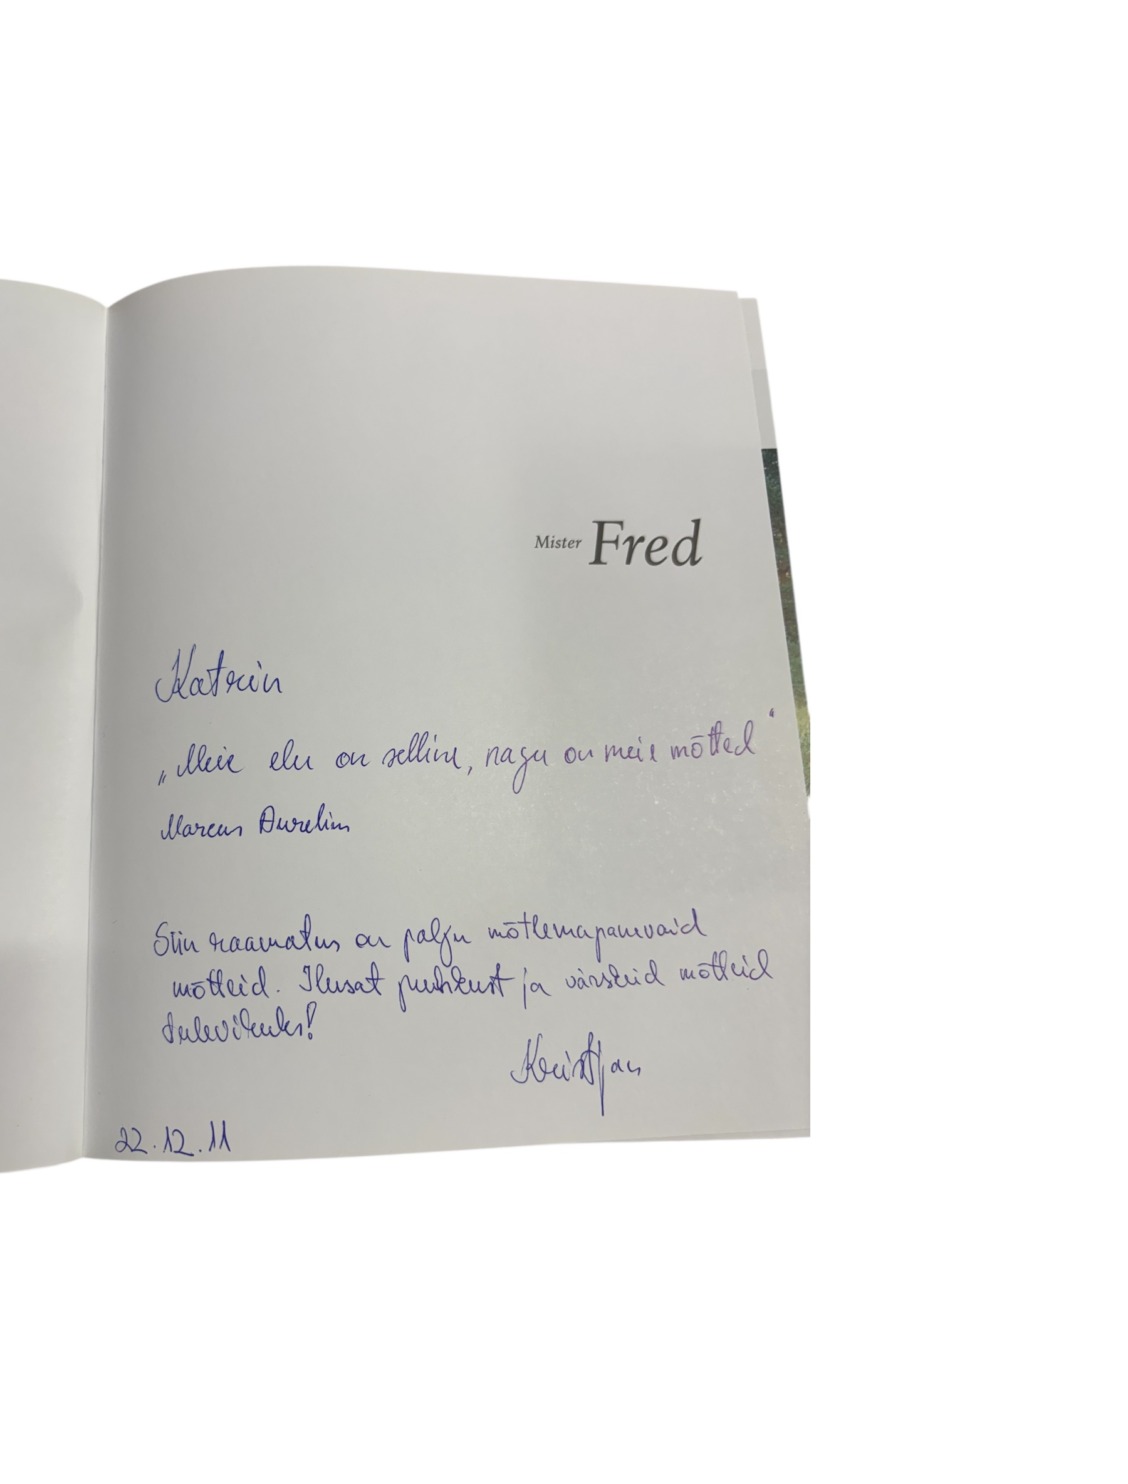 Mister Fred
Katrin
„Meie elu on selline, nagu on meie mõtted“
Marcus Aurelius
Siin raamatus on palju mõtlemapanevaid
mõtteid. Ilusat puhkust ja värskeid mõtteid
tulevikuks!
Kristjan
22.12.11